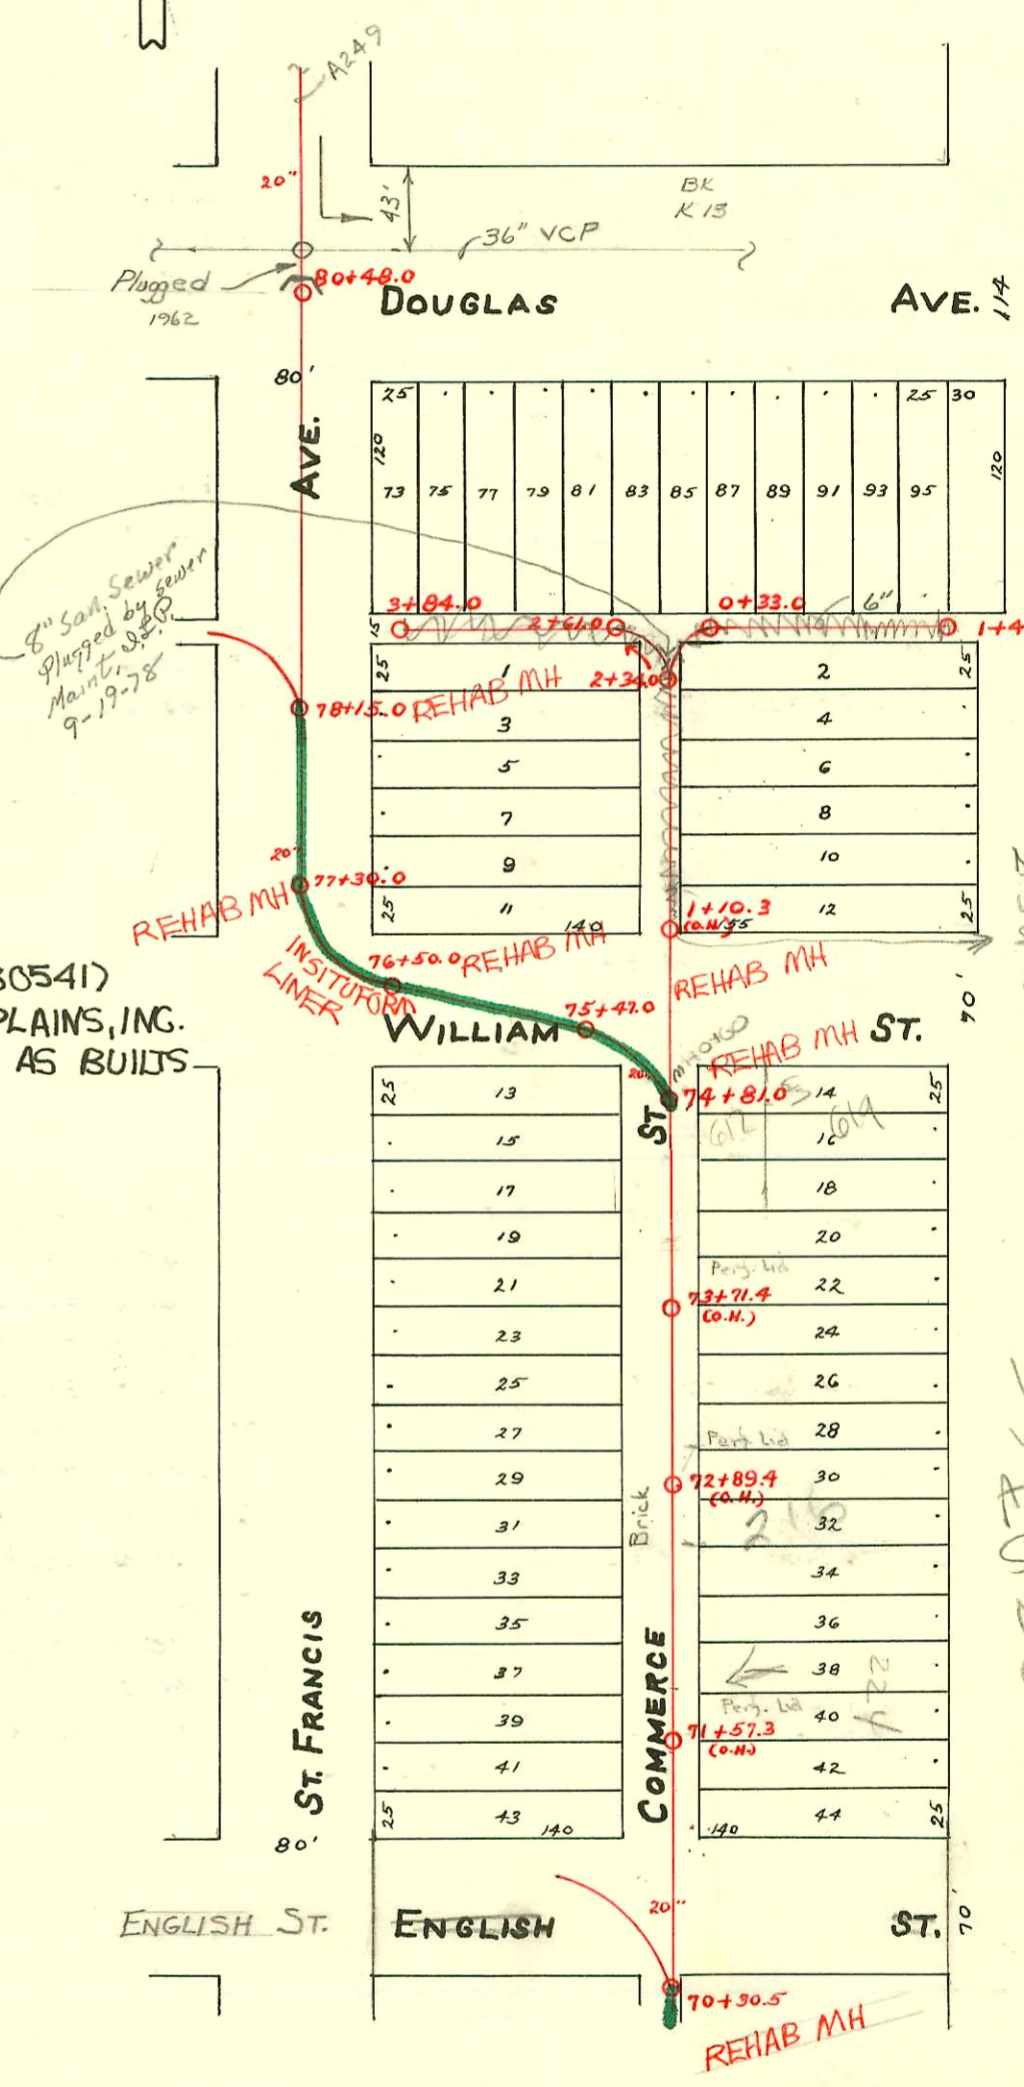 A249
20"
43'
BK
K 13
36" VCP
Plugged
1962
80+48.0
DOUGLAS AVE.
114
80'
AVE.
25 25 30
120 120
73 75 77 79 81 83 85 87 89 91 93 95
8" San. Sewer
Plugged by Sewer
Maint.
9-19-78
3+84.0
2+61.0
0+33.0
6"
1+4
15
2+34.0
78+15.0 REHAB MH
25 1 2 25
3 4
5 6
7 8
9 10
25 11 140 12 25
20"
77+30.0
REHAB MH
1+10.3
(O.H.)
55
INSITUFORM
LINER
76+50.0 REHAB MH
REHAB MH
90'
30541)
PLAINS, INC.
AS BUILTS
WILLIAM ST.
75+47.0
MH 0+60
REHAB MH
20"
74+81.0
ST
612
619
25 13 14 25
15 16
17 18
19 20
Perf. Lid
21 22
73+71.4
(O.H.)
23 24
25 26
27 28
Perf. Lid
29 30
72+89.4
(O.H.)
Brick
216
31 32
33 34
35 36
37 38
224
Perf. Lid
39 40
71+57.3
(O.H.)
41 42
25 43 140 140 44 25
ST. FRANCIS
COMMERCE
80'
20"
ENGLISH ST.
ENGLISH ST.
70'
70+30.5
REHAB MH